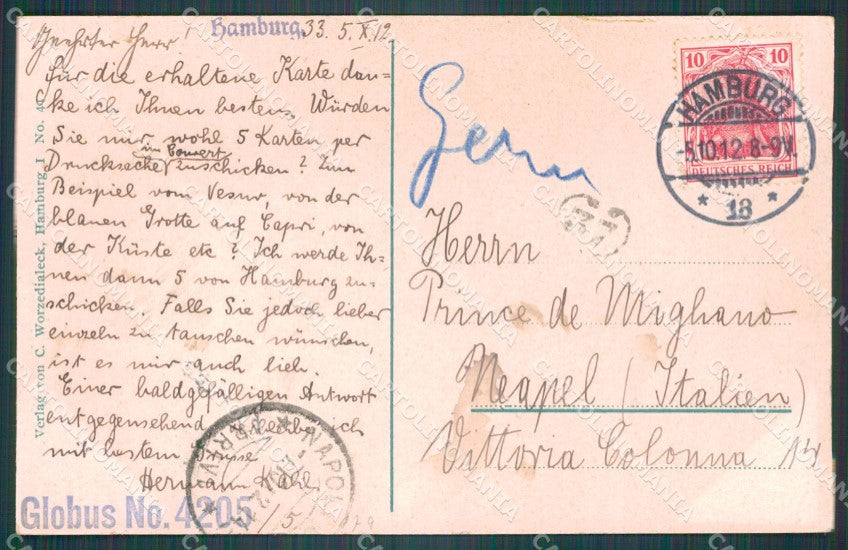 Hamburg, 33. 5. X. 12.
Geehrter Herr!
für die erhaltene Karte dan=
ke ich Ihnen bestens. Würden
Sie mir wohl 5 Karten per
Drucksache im Couvert zuschicken? Zum
Beispiel vom Vesuv, von der
blauen Grotte auf Capri, von
der Küste etc? Ich werde Ih=
nen dann 5 von Hamburg zu=
schicken. Falls Sie jedoch lieber
einzeln zu tauschen wünschen,
ist es mir auch lieb.
Einer baldgefälligen Antwort
entgegensehend ich
mit bestem Grusse
Hermann
Globus No. 4205
Verlag von C. Worzedialeck, Hamburg I No.
10 10
DEUTSCHES REICH
HAMBURG
-5.10.12.8-9V.
* 13 *
Herrn
Prince de Mighano
Neapel (Italien)
Vittoria Colonna 14
NAPOLI
CARTOLINOMANIA